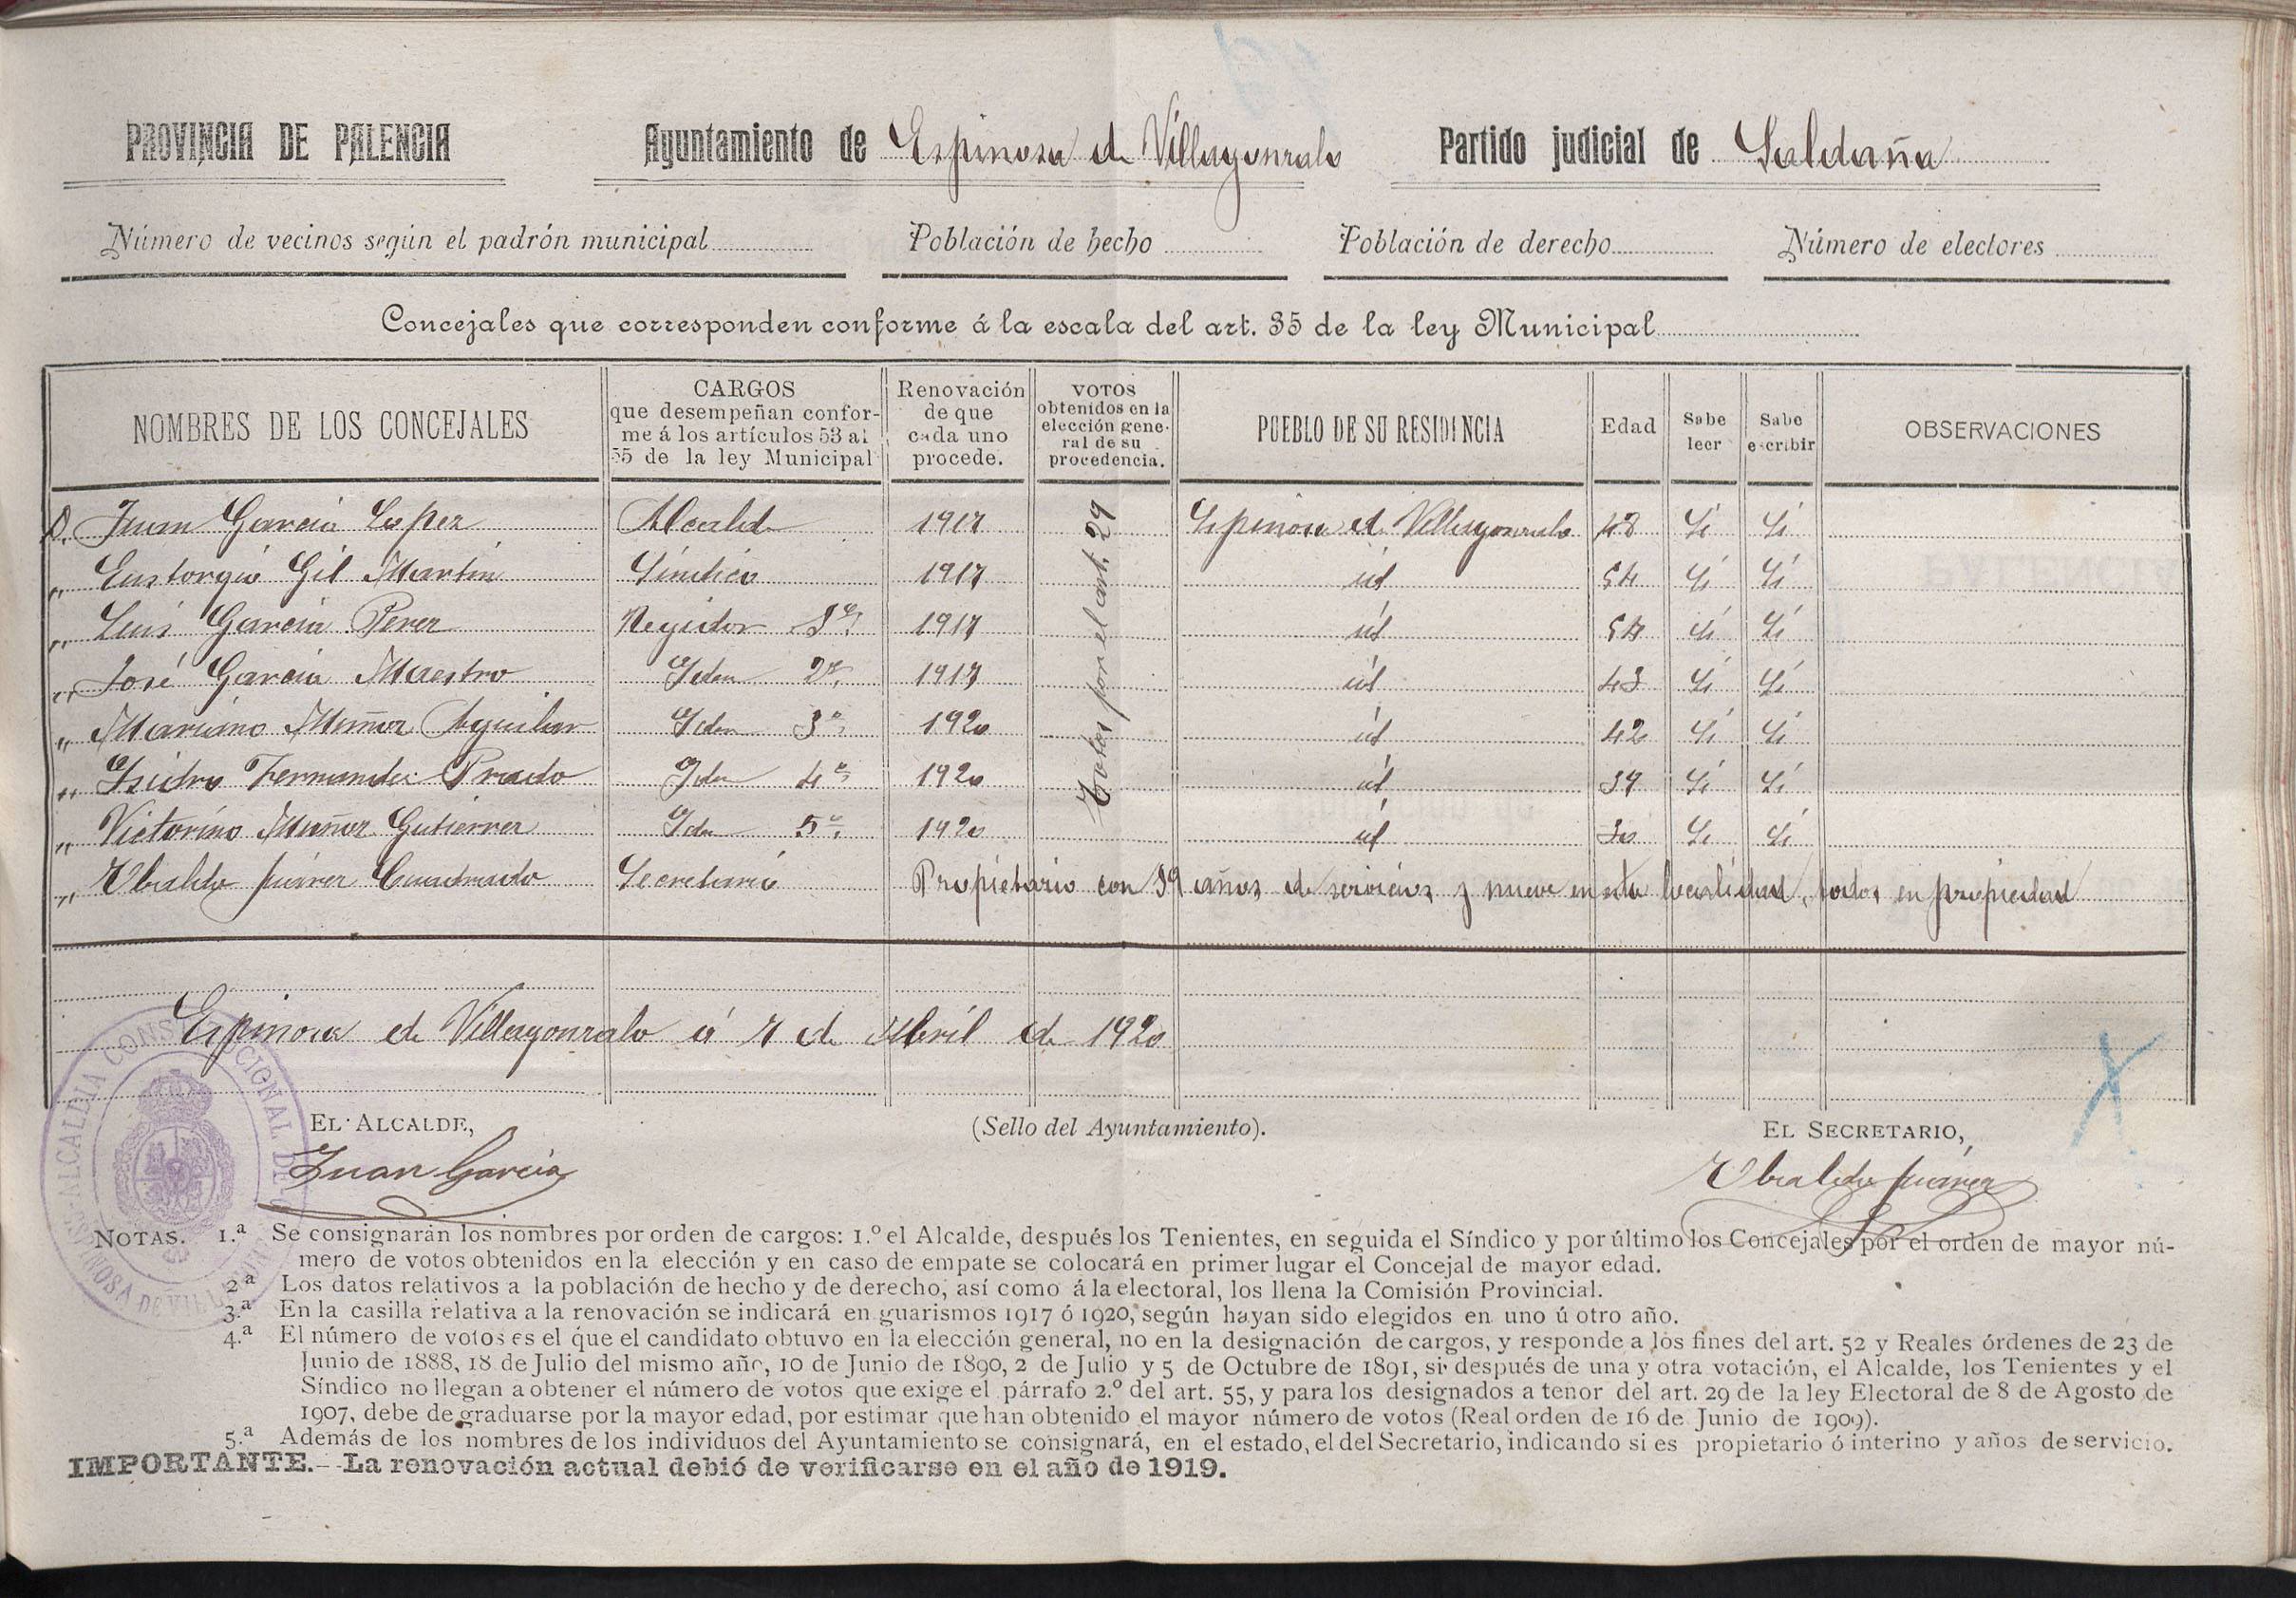 PROVINCIA DE PALENCIA Ayuntamiento de Espinosa de Villagonzalo Partido judicial de Saldaña
Número de vecinos según el padrón municipal Población de hecho Población de derecho Número de electores
Concejales que corresponden conforme á la escala del art. 35 de la ley Municipal
NOMBRES DE LOS CONCEJALES
CARGOS
que desempeñan confor-
me á los artículos 53 al
55 de la ley Municipal
Renovación
de que
cada uno
procede.
VOTOS
obtenidos en la
elección gene-
ral de su
procedencia.
PUEBLO DE SU RESIDENCIA
Edad
Sabe
leer
Sabe
escribir
OBSERVACIONES
D. Juan Garcia Lopez Alcalde 1917 Espinosa de Villagonzalo 48 Si Si
" Eustorgio Gil Martin Síndico 1917 id 54 Si Si
" Luis Garcia Perez Regidor 1º 1917 id 54 Si Si
" José Garcia Maestro Idem 2º 1917 id 43 Si Si
" Mariano Muñoz Aguilar Idem 3º 1920 id 42 Si Si
" Isidro Fernandez Prado Idem 4º 1920 id 39 Si Si
" Victorino Muñoz Gutierrez Idem 5º 1920 id 30 Si Si
Todos por el art. 29
" Ubaldo Juárez Cuadrado Secretario Propietario con 39 años de servicios y nueve en esta localidad, todos en propiedad
Espinosa de Villagonzalo á 7 de Abril de 1920
ALCALDIA CONSTITUCIONAL DE ESPINOSA DE
EL ALCALDE, (Sello del Ayuntamiento). EL SECRETARIO,
Juan Garcia Ubaldo Juárez
NOTAS. 1.ª Se consignarán los nombres por orden de cargos: 1.º el Alcalde, después los Tenientes, en seguida el Síndico y por último los Concejales por el orden de mayor nú-
mero de votos obtenidos en la elección y en caso de empate se colocará en primer lugar el Concejal de mayor edad.
2.ª Los datos relativos a la población de hecho y de derecho, así como á la electoral, los llena la Comisión Provincial.
3.ª En la casilla relativa a la renovación se indicará en guarismos 1917 ó 1920, según hayan sido elegidos en uno ú otro año.
4.ª El número de votos es el que el candidato obtuvo en la elección general, no en la designación de cargos, y responde a los fines del art. 52 y Reales órdenes de 23 de
Junio de 1888, 18 de Julio del mismo año, 10 de Junio de 1890, 2 de Julio y 5 de Octubre de 1891, si después de una y otra votación, el Alcalde, los Tenientes y el
Síndico no llegan a obtener el número de votos que exige el párrafo 2.º del art. 55, y para los designados a tenor del art. 29 de la ley Electoral de 8 de Agosto de
1907, debe de graduarse por la mayor edad, por estimar que han obtenido el mayor número de votos (Real orden de 16 de Junio de 1909).
5.ª Además de los nombres de los individuos del Ayuntamiento se consignará, en el estado, el del Secretario, indicando si es propietario ó interino y años de servicio.
IMPORTANTE.—La renovación actual debió de verificarse en el año de 1919.